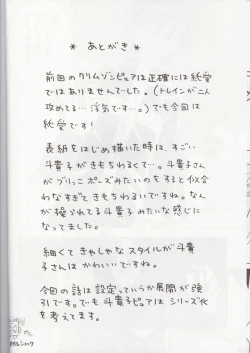 * あとがき *
前回のクリムゾンピュアは正確には純愛
ではありませんでした。(トレインが二人
攻めてる…浮気です…。)でも今回は
純愛です!
表紙をはじめ描いた時は、すごい
斗貴子がきもちわるくて…。斗貴子さん
がブリっこポーズみたいのをすると似合
わなすぎときもちわるいですね。なん
か操られてる斗貴子みたいな感じに
なってました。
細くてきゃしゃなスタイルが斗貴
子さんはかわいいですね。
今回の話は設定っていうか展開が強
引です。でも斗貴子ピュアはシリーズ化
を考えてます。